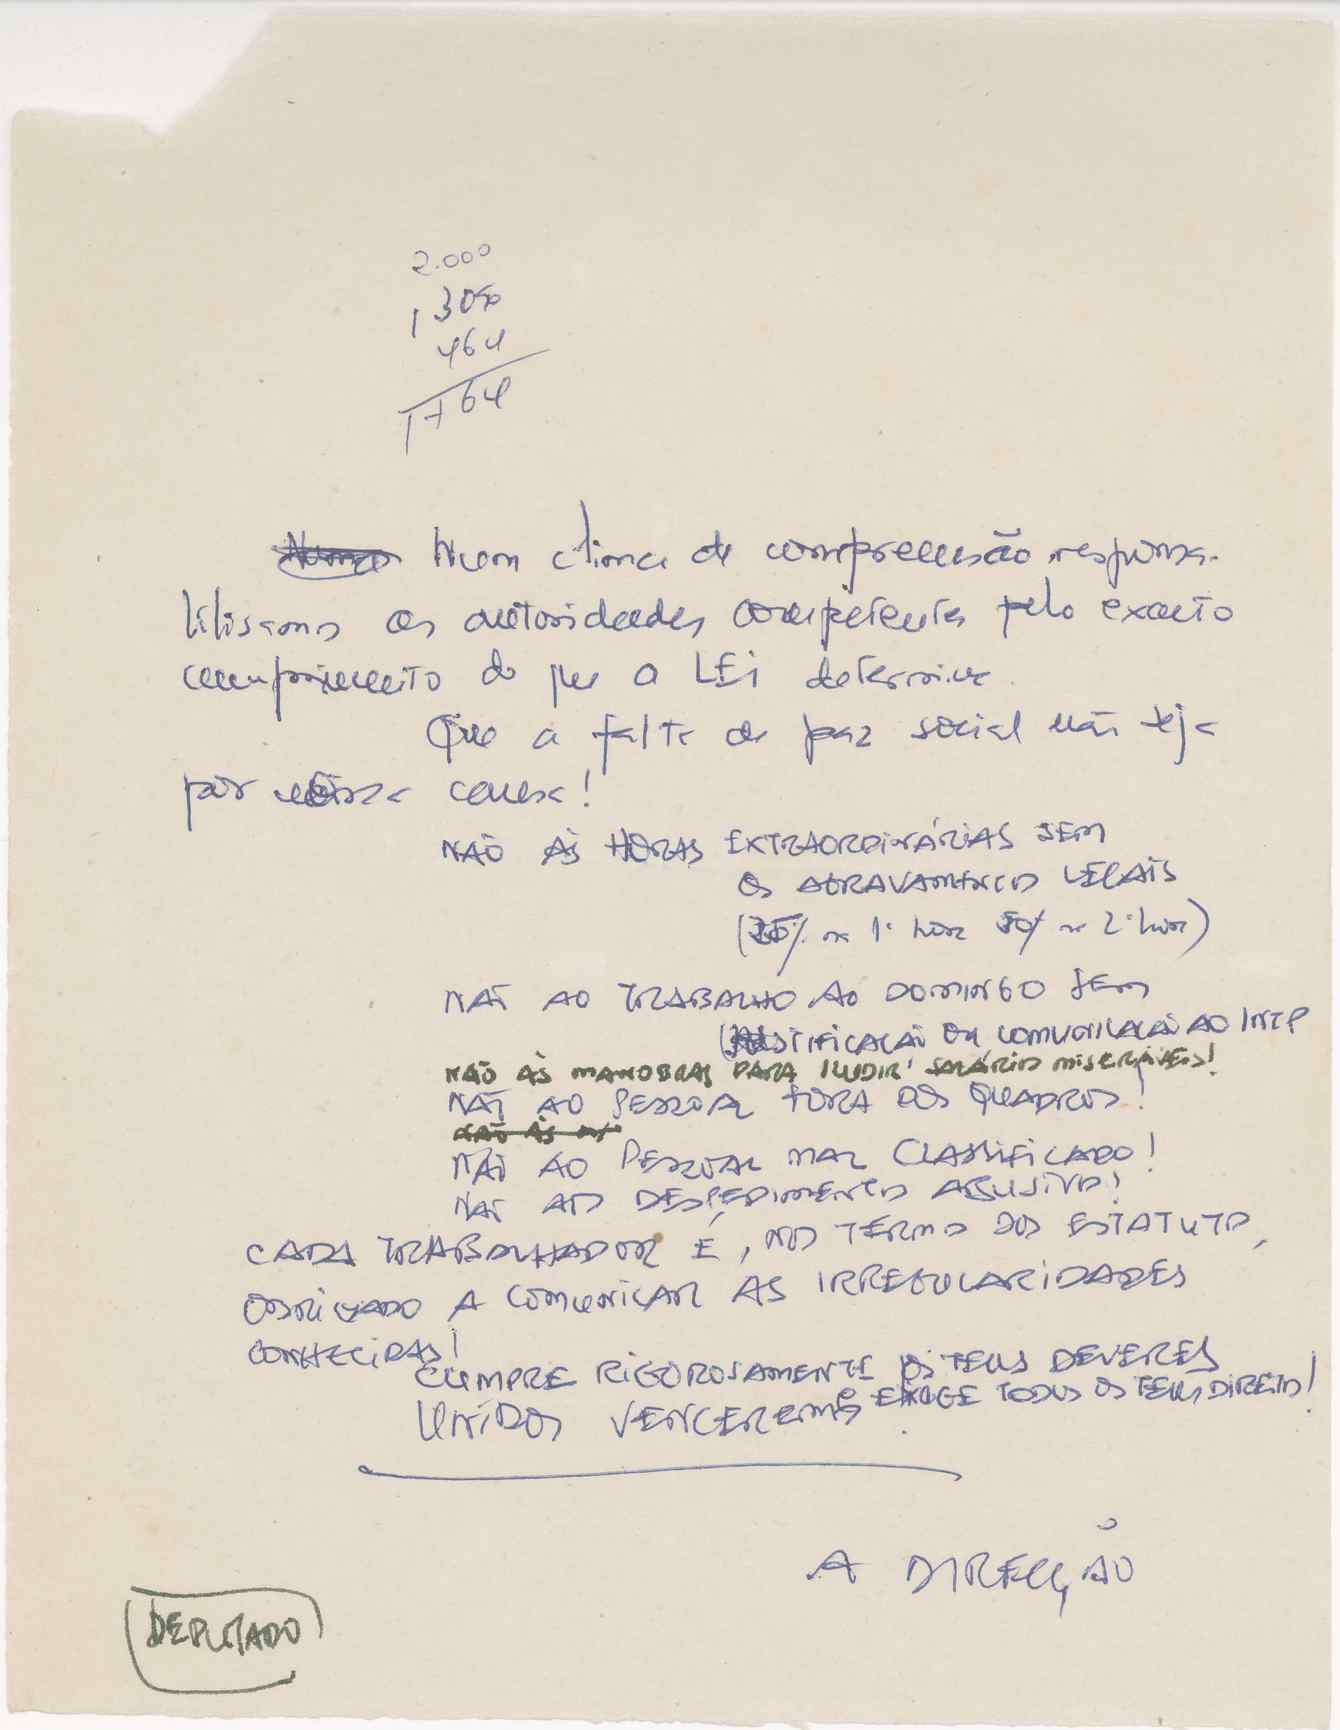 2.000
1 300
464
1764
Num clima de compreensão responsa-
bilisamos as autoridades competentes pelo exacto
cumprimento do que a LEi determina.
Que a falta de paz social não seja
por nossa causa!
NÃO ÀS HORAS EXTRAORDINÁRIAS SEM
OS AGRAVAMENTOS LEGAIS
(25% na 1ª hora 50% na 2ª hora)
NÃO AO TRABALHO AO DOMINGO SEM
JUSTIFICAÇÃO OU COMUNICAÇÃO AO INTP
NÃO ÀS MANOBRAS PARA ILUDIR SALÁRIOS MISERÁVEIS!
NÃO AO PESSOAL FORA DOS QUADROS!
NÃO ÀS
NÃO AO PESSOAL MAL CLASSIFICADO!
NÃO AOS DESPEDIMENTOS ABUSIVOS!
CADA TRABALHADOR É, NOS TERMOS DOS ESTATUTOS,
OBRIGADO A COMUNICAR AS IRREGULARIDADES
CONHECIDAS!
CUMPRE RIGOROSAMENTE OS TEUS DEVERES
e EXIGE TODOS OS TEUS DIREITOS!
UNIDOS VENCEREMOS
A DIRECÇÃO
DEPUTADO